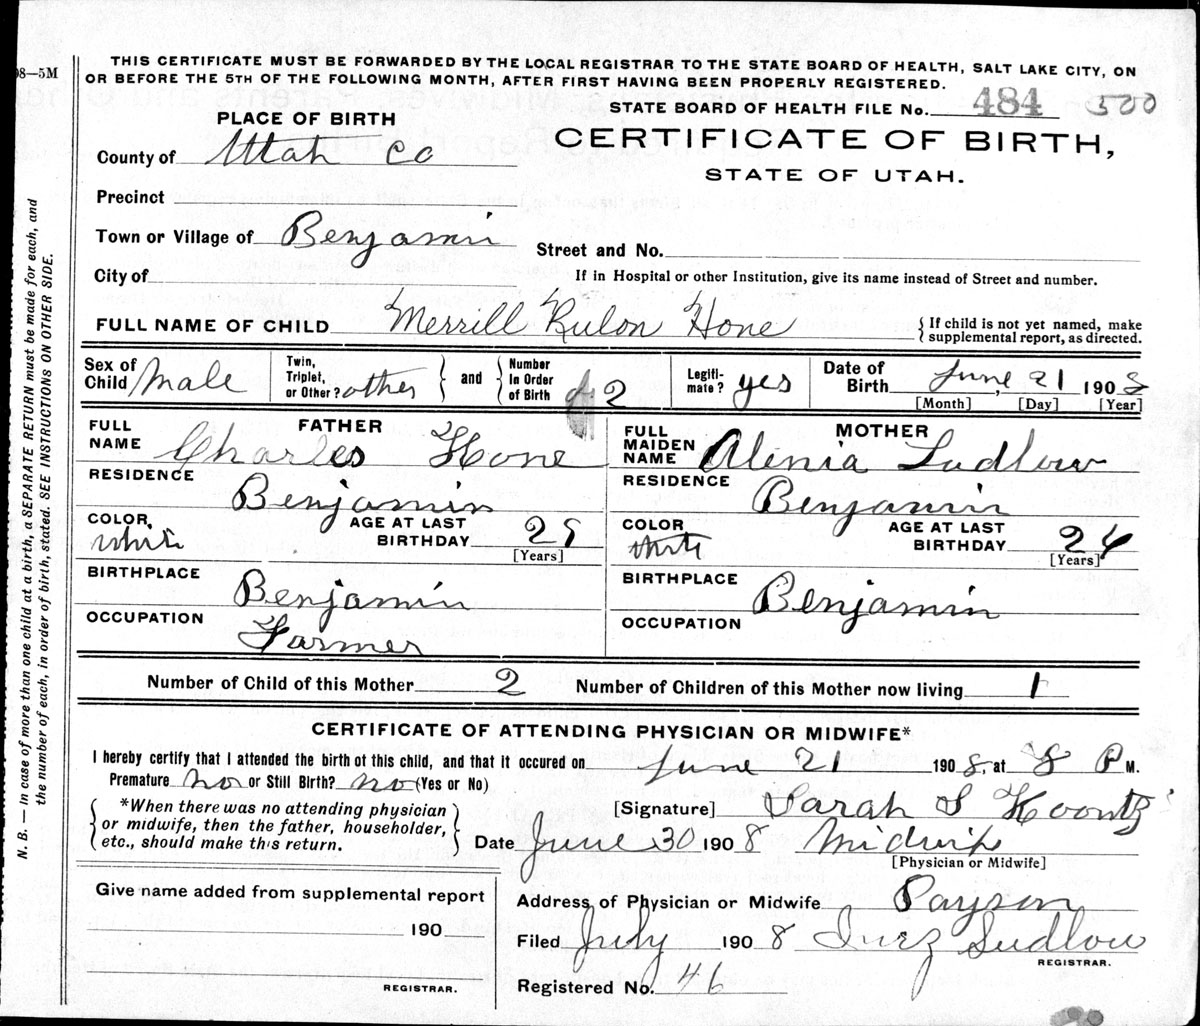 98—5M
THIS CERTIFICATE MUST BE FORWARDED BY THE LOCAL REGISTRAR TO THE STATE BOARD OF HEALTH, SALT LAKE CITY, ON
OR BEFORE THE 5TH OF THE FOLLOWING MONTH, AFTER FIRST HAVING BEEN PROPERLY REGISTERED.
STATE BOARD OF HEALTH FILE No. 484 500
PLACE OF BIRTH
CERTIFICATE OF BIRTH,
STATE OF UTAH.
County of Utah Co
Precinct
Town or Village of Benjamin
Street and No.
City of
If in Hospital or other Institution, give its name instead of Street and number.
FULL NAME OF CHILD Merrill Rulon Hone
{ If child is not yet named, make
supplemental report, as directed.
Sex of Child Male Twin, Triplet, or Other? other } and { Number In Order of Birth 2 Legiti-mate? yes Date of Birth June 21 1908
[Month] [Day] [Year]
FATHER
FULL NAME Charles Hone
RESIDENCE Benjamin
COLOR, White AGE AT LAST BIRTHDAY
[Years]
BIRTHPLACE Benjamin
OCCUPATION Farmer
MOTHER
FULL MAIDEN NAME Alenia Ludlow
RESIDENCE Benjamin
COLOR White AGE AT LAST BIRTHDAY
[Years]
BIRTHPLACE Benjamin
OCCUPATION
Number of Child of this Mother 2 Number of Children of this Mother now living 1
CERTIFICATE OF ATTENDING PHYSICIAN OR MIDWIFE*
I hereby certify that I attended the birth of this child, and that it occured on June 21 1908, at 8 P M.
Premature no or Still Birth? no (Yes or No)
{ *When there was no attending physician
or midwife, then the father, householder,
etc., should make this return. }
[Signature] Sarah S Koontz
Date June 30 1908 Midwife
[Physician or Midwife]
Give name added from supplemental report
190
REGISTRAR.
Address of Physician or Midwife Payson
Filed July 1908 Inez Ludlow
REGISTRAR.
Registered No. 46
N. B. — In case of more than one child at a birth, a SEPARATE RETURN must be made for each, and
the number of each, in order of birth, stated. SEE INSTRUCTIONS ON OTHER SIDE.